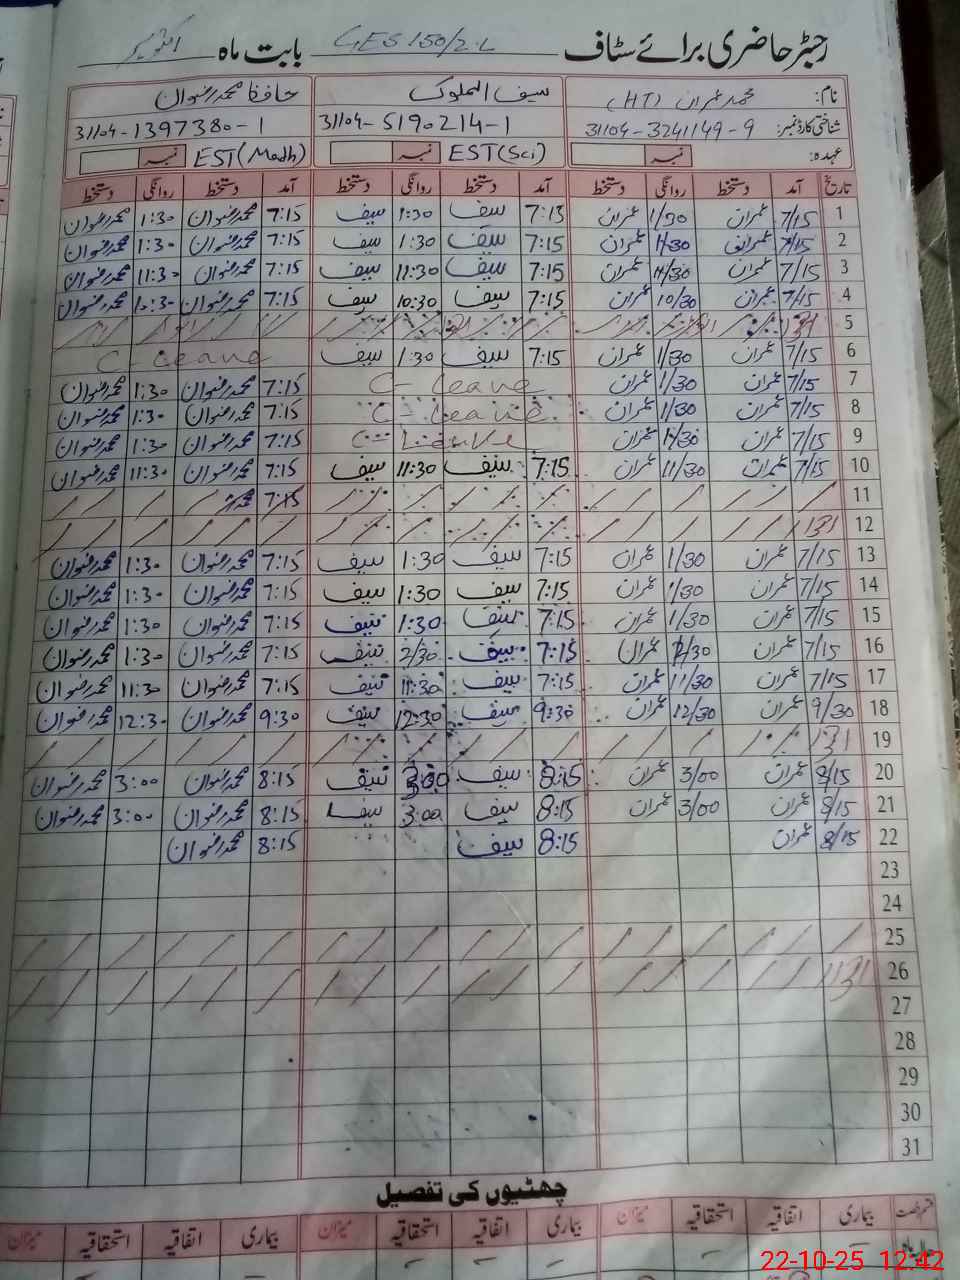 رجسٹر حاضری برائے سٹاف GES 150/2.L بابت ماہ اکتوبر
نام: محمد عمران (HT) سیف الملوک حافظ محمد رضوان
شناختی کارڈ نمبر: 31104-3241149-9 31104-5190214-1 31104-1397380-1
عہدہ: نمبر EST(Sci) نمبر EST(Math) نمبر
تاریخ آمد دستخط روانگی دستخط آمد دستخط روانگی دستخط آمد دستخط روانگی دستخط
1 7/15 عمران 1/30 عمران 7:15 سیف 1:30 سیف 7:15 محمد رضوان 1:30 محمد رضوان
2 7/15 عمران 1/30 عمران 7:15 سیف 1:30 سیف 7:15 محمد رضوان 1:30 محمد رضوان
3 7/15 عمران 11/30 عمران 7:15 سیف 11:30 سیف 7:15 محمد رضوان 11:30 محمد رضوان
4 7/15 عمران 10/30 عمران 7:15 سیف 10:30 سیف 7:15 محمد رضوان 10:30 محمد رضوان
5 اتوار
6 7/15 عمران 1/30 عمران 7:15 سیف 1:30 سیف C-Leave
7 7/15 عمران 1/30 عمران C-Leave 7:15 محمد رضوان 1:30 محمد رضوان
8 7/15 عمران 1/30 عمران C-Leave 7:15 محمد رضوان 1:30 محمد رضوان
9 7/15 عمران 1/30 عمران C-Leave 7:15 محمد رضوان 1:30 محمد رضوان
10 7/15 عمران 11/30 عمران 7:15 سیف 11:30 سیف 7:15 محمد رضوان 11:30 محمد رضوان
11 7:15 محمد
12 اتوار
13 7/15 عمران 1/30 عمران 7:15 سیف 1:30 سیف 7:15 محمد رضوان 1:30 محمد رضوان
14 7/15 عمران 1/30 عمران 7:15 سیف 1:30 سیف 7:15 محمد رضوان 1:30 محمد رضوان
15 7/15 عمران 1/30 عمران 7:15 سیف 1:30 سیف 7:15 محمد رضوان 1:30 محمد رضوان
16 7/15 عمران 2/30 عمران 7:15 سیف 2/30 سیف 7:15 محمد رضوان 1:30 محمد رضوان
17 7/15 عمران 11/30 عمران 7:15 سیف 11:30 سیف 7:15 محمد رضوان 11:30 محمد رضوان
18 9/30 عمران 12/30 عمران 9:30 سیف 12:30 سیف 9:30 محمد رضوان 12:30 محمد رضوان
19 اتوار
20 8/15 عمران 3/00 عمران 8:15 سیف 3:00 سیف 8:15 محمد رضوان 3:00 محمد رضوان
21 8/15 عمران 3/00 عمران 8:15 سیف 3:00 سیف 8:15 محمد رضوان 3:00 محمد رضوان
22 8/15 عمران 8:15 سیف 8:15 محمد رضوان
23
24
25
26 اتوار
27
28
29
30
31
چھٹیوں کی تفصیل
بیماری اتفاقیہ استحقاقیہ میزان بیماری اتفاقیہ استحقاقیہ میزان بیماری اتفاقیہ استحقاقیہ میزان
22-10-25 12:42